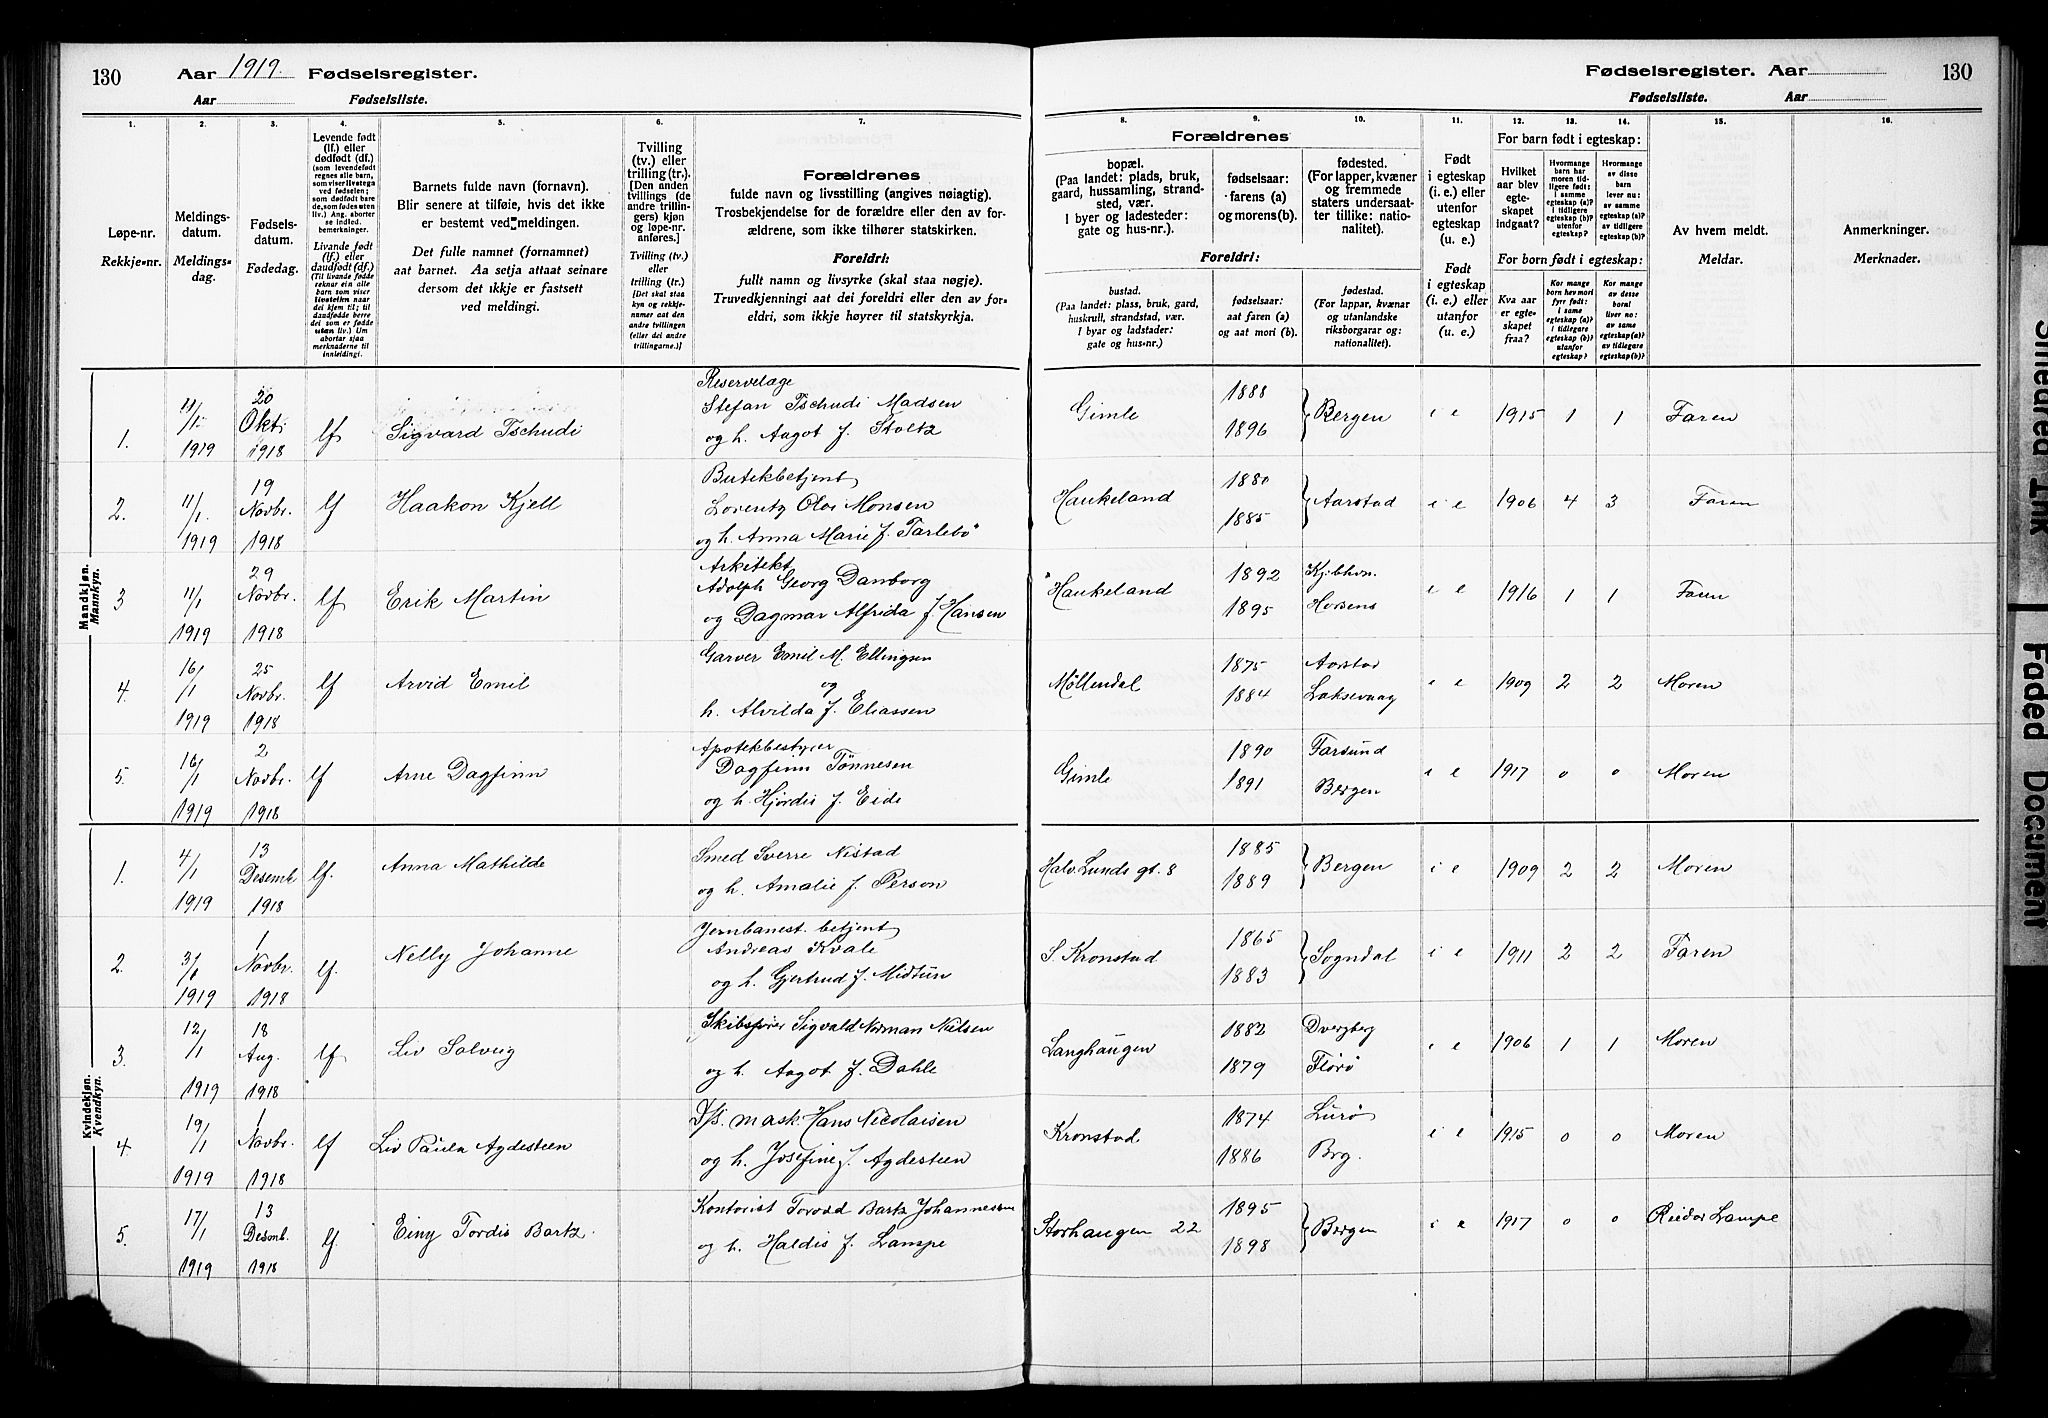 130 Aar 1919. Fødselsregister.
Aar Fødselsliste.
Fødselsregister. Aar 130
Fødselsliste. Aar
1. 2. 3. 4. 5. 6. 7. 8. 9. 10. 11. 12. 13. 14. 15. 16.
Løpe-nr.
Rekkje-nr.
Meldings-
datum.
Meldings-
dag.
Fødsels-
datum.
Fødedag.
Levende født
(lf.) eller
dødfødt (df.)
(som levendefødt
regnes alle barn,
som viser livstegn
ved fødselen;
som dødfødt bare
de, som fødes uten
liv.) Ang. aborter
se indled.
bemerkninger.
Livande født
(lf.) eller
daudfødt (df.)
(Til livande fødde
reknur ein alle
barn som viser
livsteikn naar
dei kjem til; til
daudfødde berre
dei som er fødde
utan liv.) Um
abortar sjaa
merknaderne til
innleidingi.
Barnets fulde navn (fornavn).
Blir senere at tilføie, hvis det ikke
er bestemt ved meldingen.
Det fulle namnet (fornamnet)
aat barnet. Aa setja attaat seinare
dersom det ikkje er fastsett
ved meldingi.
Tvilling
(tv.) eller
trilling (tr.).
[Den anden
tvillings (de
andre trillin-
gers) kjøn
og løpe-nr.
anføres.]
Tvilling (tv.)
eller
trilling (tr.)
[Det skal staa
kyn og rekkje-
numer aat den
andre tvillingen
(eller dei andre
trillingarne.)]
Forældrenes
fulde navn og livsstilling (angives nøiagtig).
Trosbekjendelse for de forældre eller den av for-
ældrene, som ikke tilhører statskirken.
Foreldri:
fullt namn og livsyrke (skal staa nøgje).
Truvedkjenningi aat dei foreldri eller den av for-
eldri, som ikkje høyrer til statskyrkja.
Forældrenes
bopæl.
(Paa landet: plads, bruk,
gaard, hussamling, strand-
sted, vær.
I byer og ladesteder:
gate og hus-nr.).
fødselsaar:
farens (a)
og morens (b).
fødested.
(For lapper, kvæner
og fremmede
staters undersaat-
ter tillike: natio-
nalitet).
Foreldri:
bustad.
(Paa landet: plass, bruk, gard,
huskrull, strandstad, vær.
I byar og ladstader:
gate og hus-nr.)
fødselsaar:
aat faren (a)
og aat mori (b).
fødestad.
(For lappar, kvænar
og utanlandske
riksborgarar og:
nationalitet).
Født
i egteskap
(i. e.) eller
utenfor
egteskap
(u. e.)
Født
i egteskap
(i. e.) eller
utanfor
(u. e.)
For barn født i egteskap:
Hvilket
aar blev
egte-
skapet
indgaat?
Hvormange
barn har
moren tid-
ligere født:
i samme
egteskap (a)?
i tidligere
egteskap (b)?
utenfor
egteskap?
Hvormange
av disse
barn
lever nu:
av samme
egteskap (a)?
av tidligere
egteskap (b)?
For born født i egteskap:
Kva aar
er egte-
skapet
fraa?
Kor mange
born hev mori
fyrr født:
i same
egteskap (a)?
i tidlegare
egteskap (b)?
utanfor
egteskap?
Kor mange
av desse
born
liver no:
av same
egteskap (a)?
av tidlegare
egteskap (b)?
Av hvem meldt.
Meldar.
Anmerkninger.
Merknader.
Mandkjøn.
Mannkyn.
1. 11/1 1919 20 Okt. 1918 lf Sigvard Tschudi Reservelæge
Stefan Tschudi Madsen
og h. Aagot f. Stoltz Gimle 1888 1896 Bergen i e 1915 1 1 Faren
2. 11/1. 1919 19 Novbr. 1918 lf Haakon Kjell Butikbetjent
Lorentz Olai Monsen
og h. Anna Marie f. Tarlebø Haukeland 1880 1885 Aarstad i e 1906 4 3 Faren
3 11/1 1919 29 Novbr. 1918 lf Erik Martin Arkitekt
Adolph Georg Danborg
og Dagmar Alfrida f. Hansen Haukeland 1892 1895 Kjøbhvn. Horsens i e 1916 1 1 Faren
4. 16/1 1919 25 Novbr. 1918 lf Arvid Emil Garver Emil M. Ellingsen
og
h. Alvilda f. Eliassen Møllendal 1875 1884 Aarstad Laksevaag i e 1909 2 2 Moren
5. 16/1 1919 2 Novbr. 1918 lf Arne Dagfinn Apotekbestyrer
Dagfinn Tønnesen
og h. Hjørdis f. Eide Gimle 1890 1891 Farsund Bergen i e 1917 0 0 Moren
Kvindekjøn.
Kvendkyn.
1. 4/1 1919 13 Desemb 1918 lf. Anna Mathilde Smed Sverre Nistad
og h. Amalie f. Person Halv. Lunds gt. 8 1885 1889 Bergen i e 1909 2 2 Moren
2. 3/1 1919 1 Novbr. 1918 lf. Nelly Johanne Jernbanest. betjent
Andreas Kvale
og h. Gjertrud f. Midtun S. Kronstad 1865 1883 Sogndal i e 1911 2 2 Faren
3. 12/1 1919 18 Aug. 1918 lf Liv Solveig Skibsfører Sigvald Norman Nielsen
og h. Aagot f. Dahle Langhaugen 1882 1879 Dverberg Florø i e 1906 1 1 Moren
4 19/1 1919 1 Novbr. 1918 lf Liv Paula Agdesteen D/s. mask. Hans Nicolaisen
og h. Josefine f. Agdesteen Kronstad 1874 1886 Lurø Brg. i e 1915 0 0 Moren
5. 17/1 1919 13 Desemb. 1918 lf. Einy Tordis Bartz. Kontorist Torvald Bartz Johannessen
og h. Haldis f. Lampe Storhaugen 22 1895 1898 Bergen i e 1917 0 0 Reidar Lampe
Smeared Ink
Faded Document